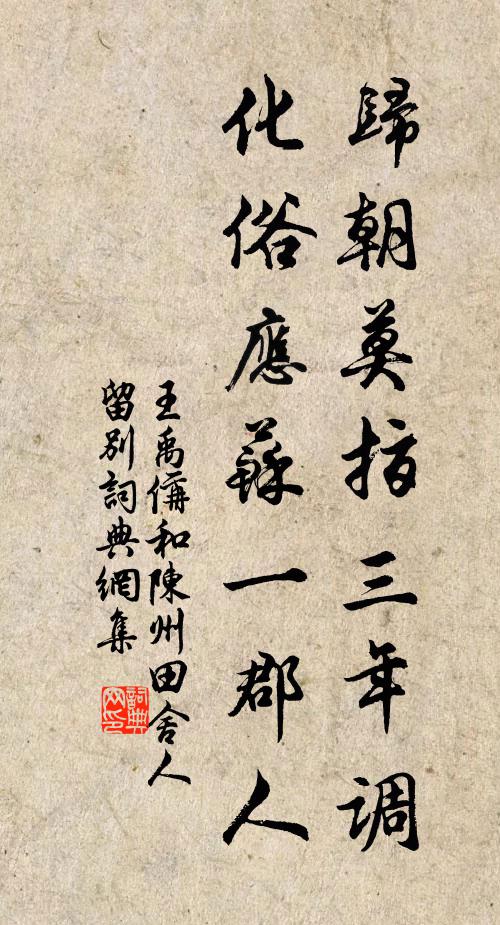 歸朝莫指三年調
化俗應蘇一郡人
王禹偁和陳州田舍人
留別詞典網集
詞典网印